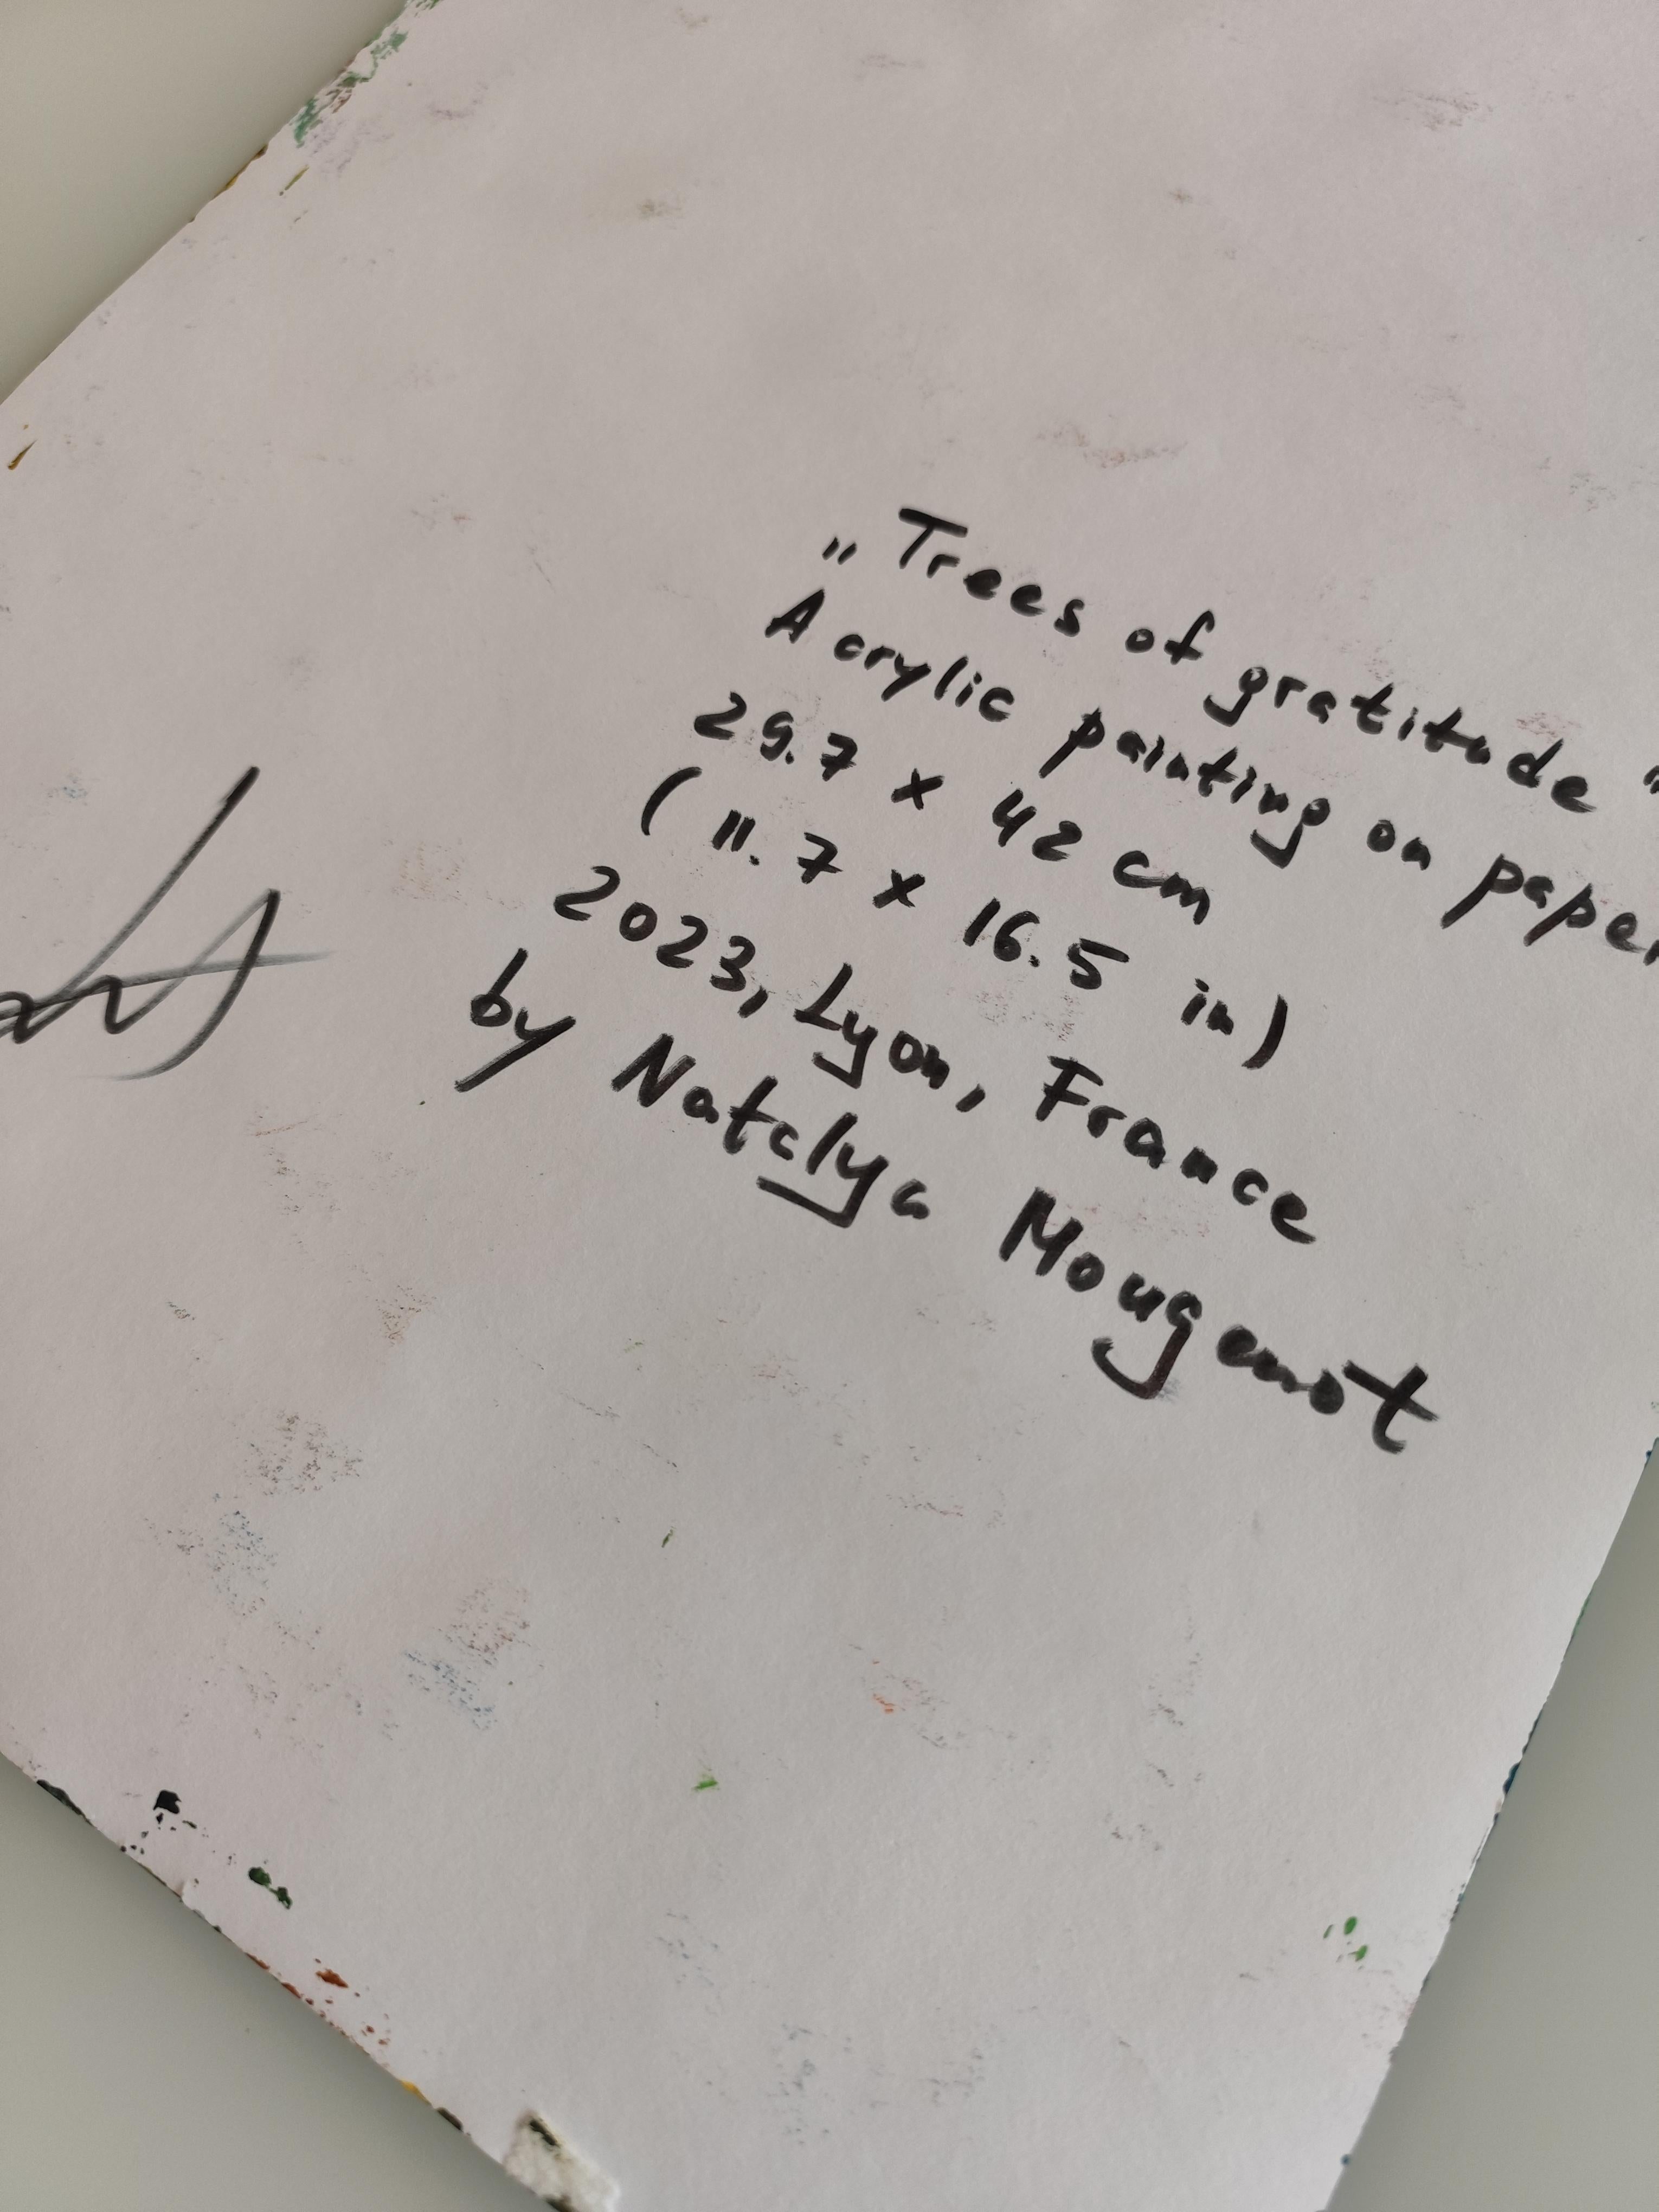 „Trees of gratitude"
Acrylic painting on paper
29.7 x 42 cm
(11.7 x 16.5 in)
2023, Lyon, France
by Natalya Mougenot